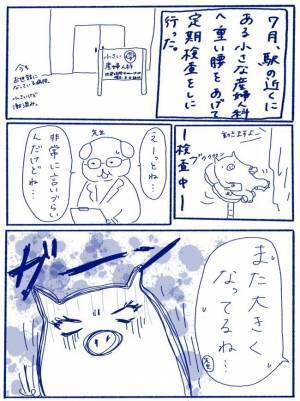 7月、駅の近くに
ある小さな産婦人科
へ重い腰をあげて
定期検査をしに
行った。
小さい
産婦人科
今も
お世話に
なっている病院。
小さいけど
動きますよー
ー検査中ー
先生
えーっとね…
非常に言いづらい
んだけどね…
また大きく
なってるね…
先生
ガーン